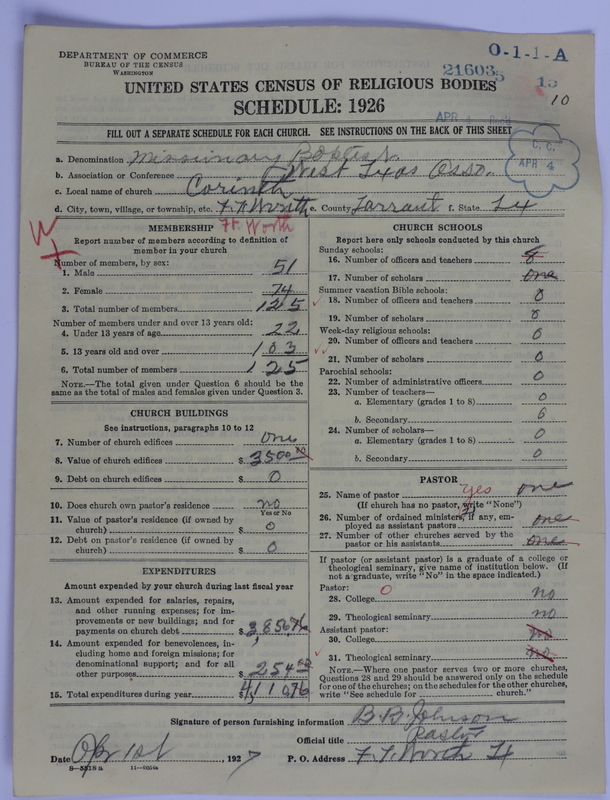 DEPARTMENT OF COMMERCE
BUREAU OF THE CENSUS
WASHINGTON
O-1-1-A
21603
10
UNITED STATES CENSUS OF RELIGIOUS BODIES
SCHEDULE: 1926
APR 4
FILL OUT A SEPARATE SCHEDULE FOR EACH CHURCH. SEE INSTRUCTIONS ON THE BACK OF THIS SHEET
C. C.
APR 4
a. Denomination Missionary Baptest
b. Association or Conference West Texas Osso.
c. Local name of church Corinth
d. City, town, village, or township, etc. Ft Worth e. County Tarrant f. State Tx
Ft. Worth
MEMBERSHIP
Report number of members according to definition of
member in your church
Number of members, by sex:
1. Male 51
2. Female 74
3. Total number of members 125
Number of members under and over 13 years old:
4. Under 13 years of age 22
5. 13 years old and over 103
6. Total number of members 125
NOTE.—The total given under Question 6 should be
same as the total of males and females given under Question 3.
CHURCH BUILDINGS
See instructions, paragraphs 10 to 12
7. Number of church edifices one
8. Value of church edifices $ 3500.00
9. Debt on church edifices $ 0
10. Does church own pastor's residence no
Yes or No
11. Value of pastor's residence (if owned by
church) $ 0
12. Debt on pastor's residence (if owned by
church) $ 0
EXPENDITURES
Amount expended by your church during last fiscal year
13. Amount expended for salaries, repairs,
and other running expenses; for im-
provements or new buildings; and for
payments on church debt $ 3,856.76
14. Amount expended for benevolences, in-
cluding home and foreign missions; for
denominational support; and for all
other purposes $ 254.00
15. Total expenditures during year $ 4,110.76
CHURCH SCHOOLS
Report here only schools conducted by this church
Sunday schools:
16. Number of officers and teachers 8
17. Number of scholars one
Summer vacation Bible schools:
18. Number of officers and teachers 0
19. Number of scholars 0
Week-day religious schools:
20. Number of officers and teachers 0
21. Number of scholars 0
Parochial schools:
22. Number of administrative officers 0
23. Number of teachers—
a. Elementary (grades 1 to 8) 0
b. Secondary 0
24. Number of scholars—
a. Elementary (grades 1 to 8) 0
b. Secondary 0
PASTOR
25. Name of pastor yes one
(If church has no pastor, write "None")
26. Number of ordained ministers, if any, em-
ployed as assistant pastors one
27. Number of other churches served by the
pastor or his assistants one
If pastor (or assistant pastor) is a graduate of a college or
theological seminary, give name of institution below. (If
not a graduate, write "No" in the space indicated.)
Pastor: 0
28. College no
29. Theological seminary no
Assistant pastor:
30. College no
31. Theological seminary no
NOTE.—Where one pastor serves two or more churches,
Questions 28 and 29 should be answered only on the schedule
for one of the churches; on the schedules for the other churches,
write "See schedule for church."
Signature of person furnishing information B. B. Johnson
Official title Pastor
Date Opr 1st, 1927 P. O. Address Ft Worth Tx
8—5518 a 11—4054a